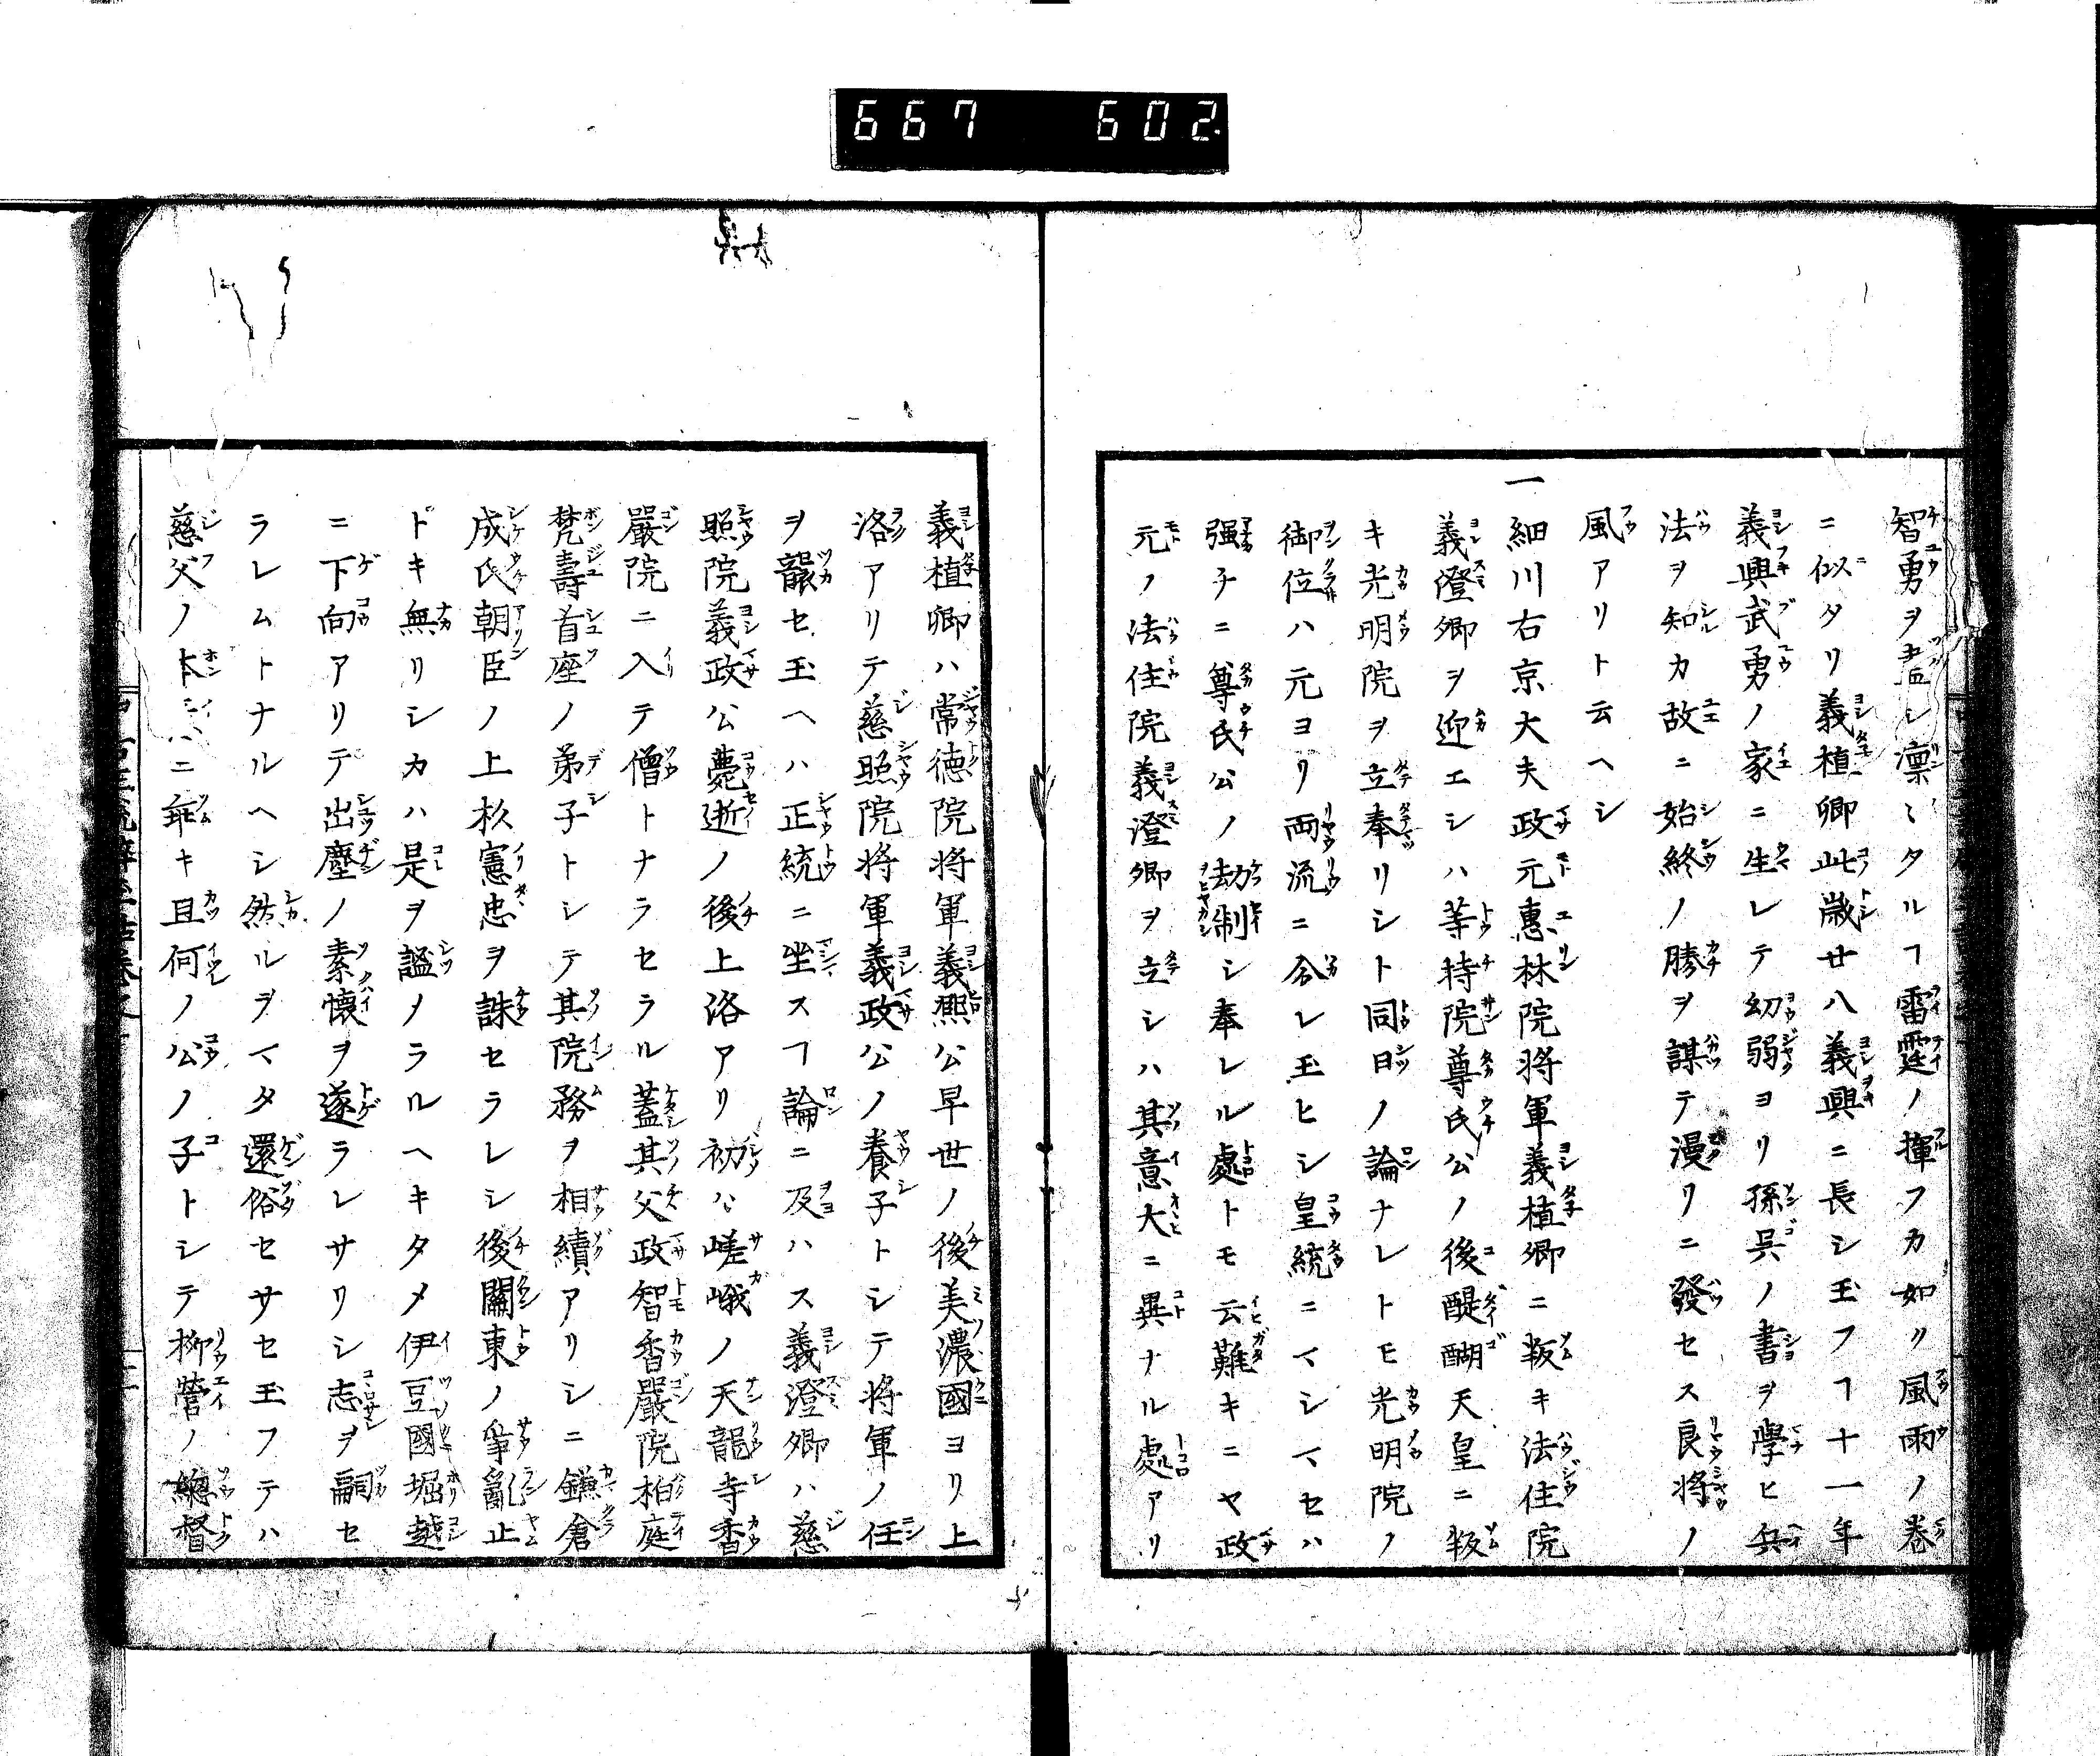 667 602
智勇ヲ盡シ凛〻タルヿ雷霆ノ揮フカ如リ風雨ノ巻
ニ似タリ義植卿此歳廿八義興ニ長シ玉フヿ十一年
義興武勇ノ家ニ生レテ幼弱ヨリ孫呉ノ書ヲ學ヒ兵
法ヲ知カ故ニ始終ノ勝ヲ謀テ漫リニ發セス良将ノ
風アリト云ヘシ
一細川右京大夫政元惠林院将軍義植卿ニ叛キ法住院
義澄卿ヲ迎エシハ等持院尊氏公ノ後醍醐天皇ニ叛
キ光明院ヲ立奉リシト同日ノ論ナレトモ光明院ノ
御位ハ元ヨリ両流ニ分レ玉ヒシ皇統ニマシマセハ
强チニ尊氏公ノ劫制シ奉レル處トモ云難キニヤ政
元ノ法住院義澄卿ヲ立シハ其意大ニ異ナル處アリ
義植卿ハ常徳院将軍義熙公早世ノ後美濃國ヨリ上
洛アリテ慈照院将軍義政公ノ養子トシテ将軍ノ任
ヲ襲セ玉ヘハ正統ニ坐スヿ論ニ及ハス義澄卿ハ慈
照院義政公薨逝ノ後上洛アリ初ハ嵯峨ノ天龍寺香
嚴院ニ入テ僧トナラセラル蓋其父政智香嚴院柏庭
梵壽首座ノ弟子トシテ其院務ヲ相續アリシニ鎌倉
成氏朝臣ノ上杦憲忠ヲ誅セラレシ後關東ノ爭亂止
ドキ無リシカハ是ヲ謐メラルヘキタメ伊豆國堀越
ニ下向アリテ出塵ノ素懐ヲ遂ラレサリシ志ヲ嗣セ
ラレムトナルヘシ然ルヲマタ還俗セサセ玉フテハ
慈父ノ本ニ乖キ且何ノ公ノ子トシテ柳營ノ總督